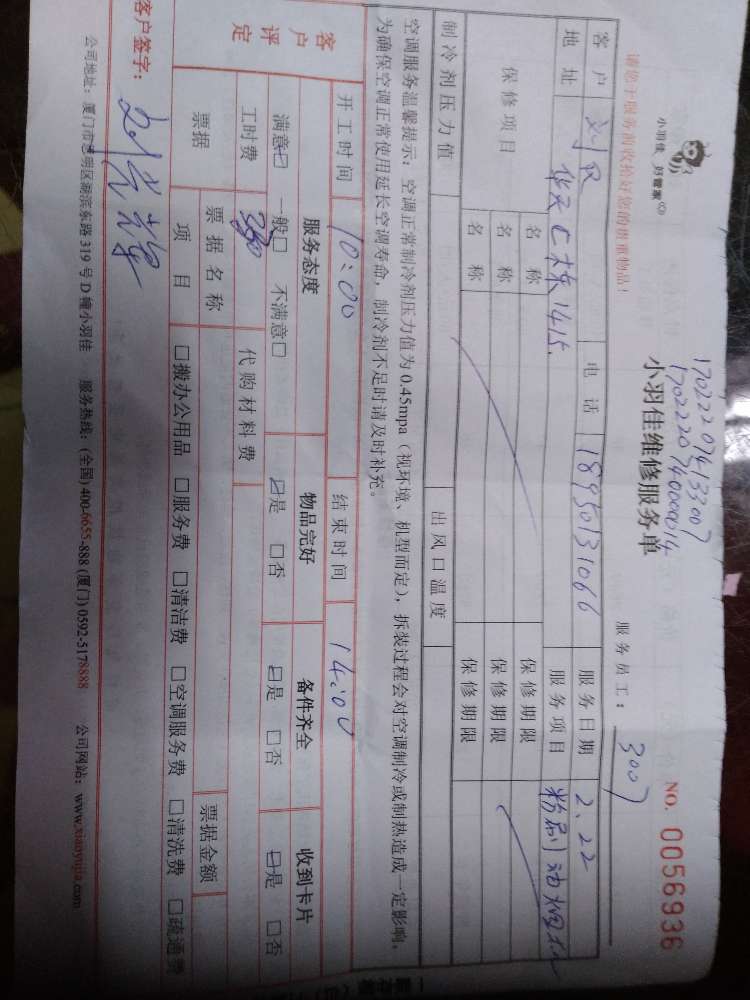 170222074133007
170222074000014
小羽佳 好管家
小羽佳维修服务单
NO. 0056936
请您于服务前收拾好您的贵重物品！
服务员工： 3007
客户 电话 18950131066 服务日期 2.22
地址 华天C栋1415. 服务项目 粉刷
保修项目 名称 保修期限
名称 保修期限
名称 保修期限
制冷剂压力值 出风口温度
空调服务温馨提示：空调正常制冷剂压力值为0.45mpa（视环境、机型而定），拆装过程会对空调制冷或制热造成一定影响，
为确保空调正常使用延长空调寿命，制冷剂不足时请及时补充。
开工时间 10:00 结束时间 14:00
客户评定 服务态度 物品完好 备件齐全 收到卡片
满意☑ 一般□ 不满意□ ☑是 □否 ☑是 □否 ☑是 □否
工时费 代购材料费
票据 票据名称 票据金额
项目 □搬办公用品 □服务费 □清洁费 □空调服务费 □清洗费 □疏通费
客户签字：
公司地址：厦门市思明区湖滨东路319号D幢小羽佳 服务热线：(全国)400-6655-888 (厦门)0592-5178888 公司网站：www.xiaoyujia.com